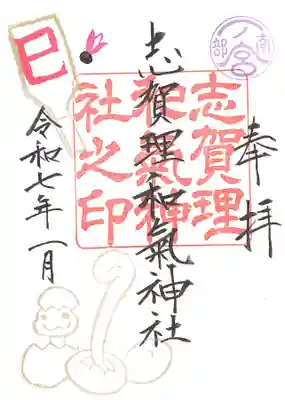 奉拝
南部一ノ宮
志賀理和氣神社
志賀理和氣神社之印
巳
令和七年一月